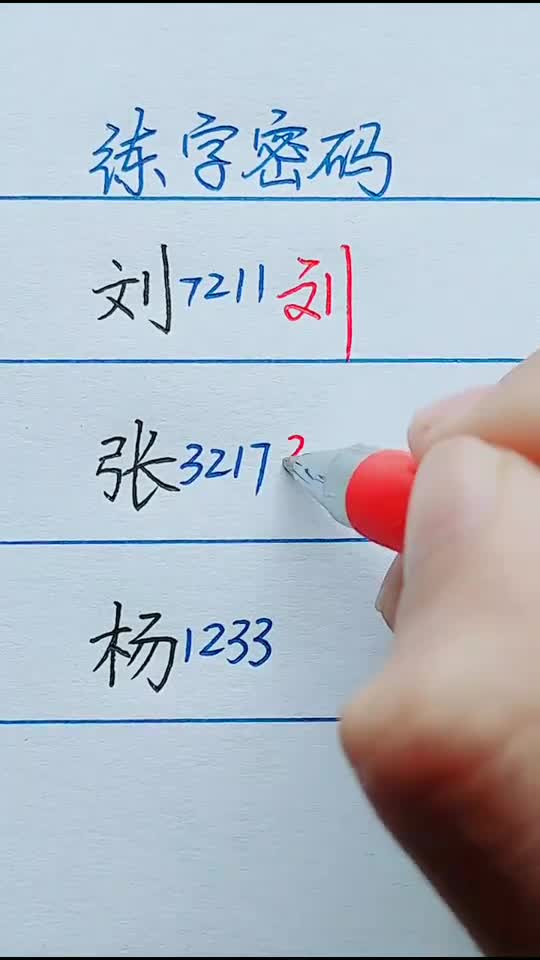 练字密码
刘7211刘
张3217
杨1233